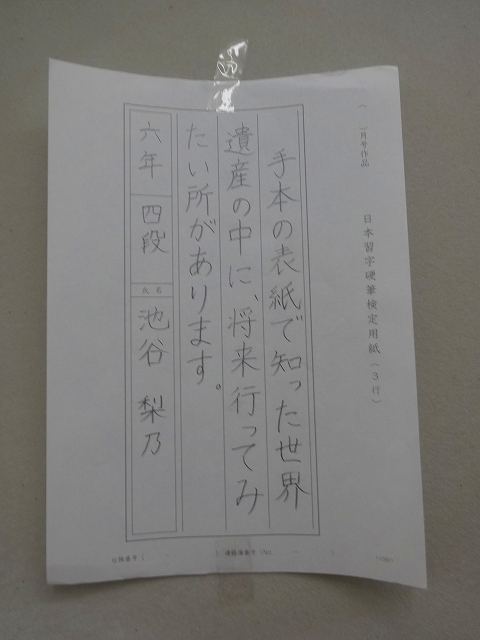 一月号作品
日本習字硬筆検定用紙（3行）
手本の表紙で知った世界
遺産の中に、将来行ってみ
たい所があります。
六年 四段 氏名 池谷 梨乃